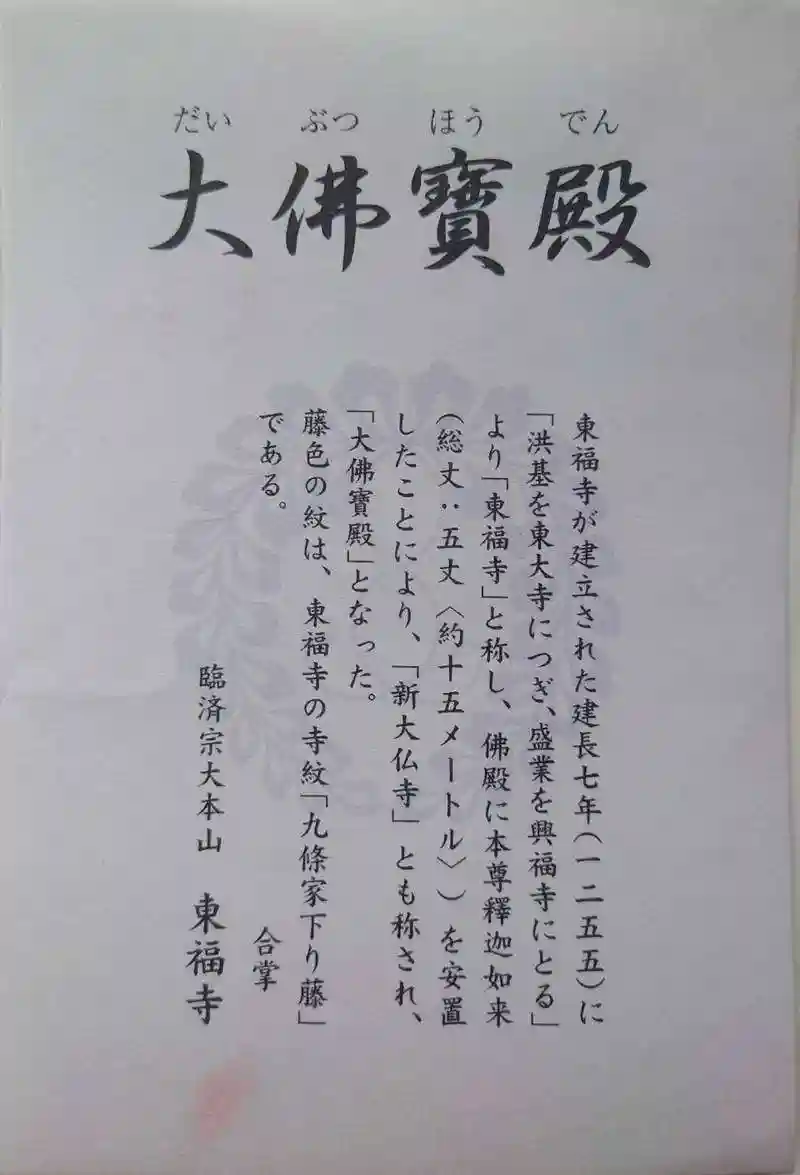 だい ぶつ ほう でん
大佛寶殿
東福寺が建立された建長七年(一二五五)に
「洪基を東大寺につぎ、盛業を興福寺にとる」
より「東福寺」と称し、佛殿に本尊釋迦如来
(総丈：五丈〈約十五メートル〉)を安置
したことにより、「新大仏寺」とも称され、
「大佛寶殿」となった。
藤色の紋は、東福寺の寺紋「九條家下り藤」
である。
合掌
臨済宗大本山 東福寺